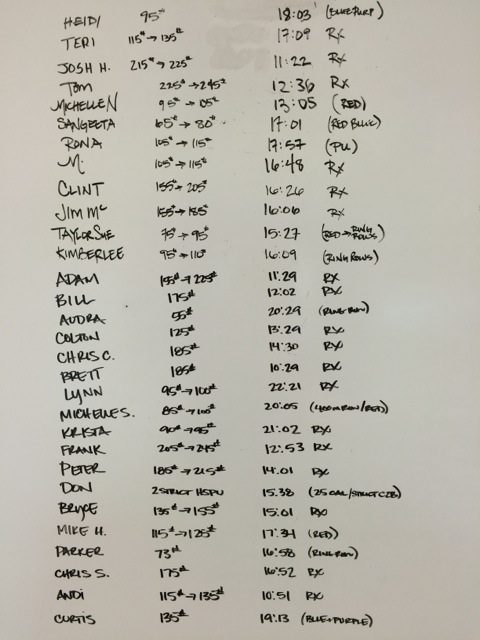 HEIDI 95# 18:03 (BLUE/PURP)
TERI 115# → 135# 17:09 RX
JOSH H. 215# → 225# 11:22 RX
TOM 225# → 245# 12:36 RX
MICHELLE N 95# → 05# 13:05 (RED)
SANGEETA 65# → 80# 17:01 (RED BLUE)
RONA 105# → 115# 17:57 (PUL)
M. 105# → 115# 16:48 RX
CLINT 155# → 205# 16:26 RX
JIM Mc 155# → 185# 16:06 RX
TAYLOR SUE 75# → 95# 15:27 (RED → RING ROWS)
KIMBERLEE 95# → 110# 16:09 (RING ROWS)
ADAM → 225# 11:29 RX
BILL 175# 12:02 RX
AUDRA 55# 20:29 (RING ROW)
COLTON 125# 13:29 RX
CHRIS C. 185# 14:30 RX
BRETT 185# 10:29 RX
LYNN 95# → 100# 22:21 RX
MICHELLE S. 85# → 100# 20:05 (400M ROW/RED)
KRISTA 90# → 95# 21:02 RX
FRANK 205# → 245# 12:53 RX
PETER 185# → 215# 14:01 RX
DON 2 STRICT HSPU 15:38 (25 CAL/STRICT C2B)
BRYCE 135# → 155# 15:01 RX
MIKE H. 115# → 125# 17:34 (RED)
PARKER 73# 16:58 (RING ROW)
CHRIS S. 175# 16:52 RX
ANDI 115# → 135# 10:51 RX
CURTIS 135# 19:13 (BLUE+PURPLE)